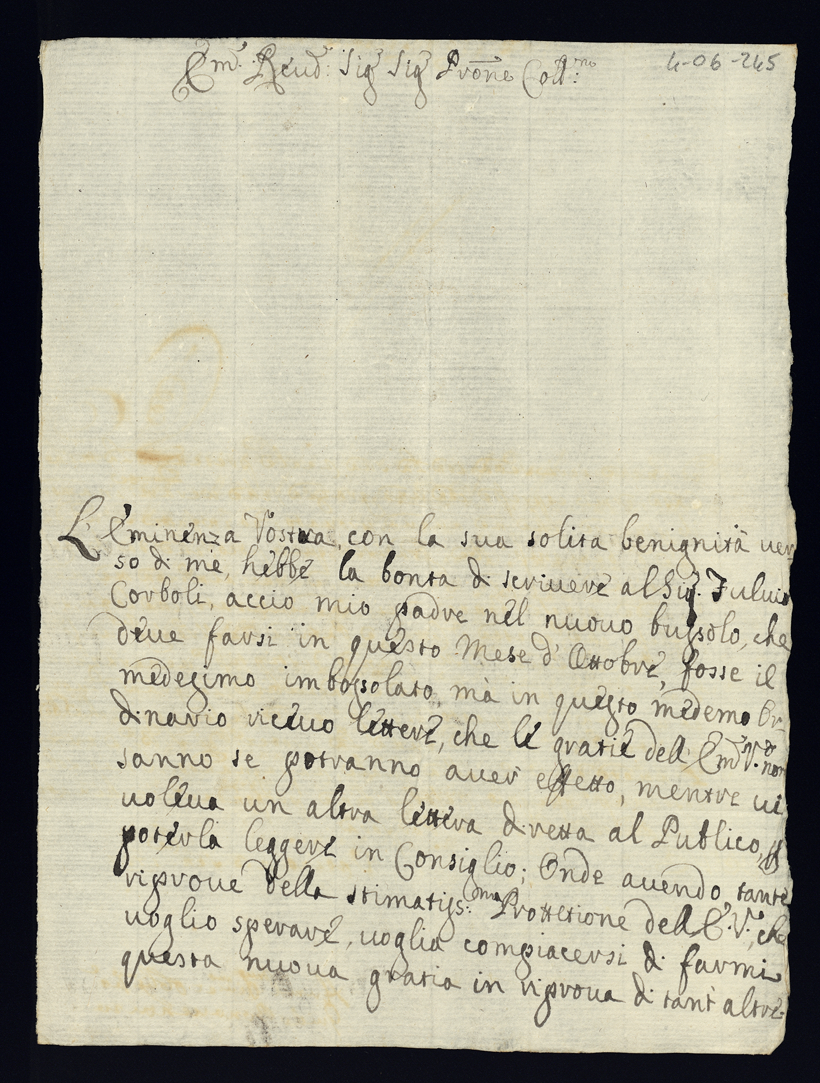 Em.º Reud: Sig.r Sig.r Prone Coll.mo
4-06-245
L'Eminenza Vostra, con la sua solita benignità uer
so di me, hebbe la bonta di scriuere al Sig.r Fuluio
Corboli, acciò mio padre nel nuouo bussolo, che
deue farsi in questo Mese d'Ottobre, fosse il
medesimo imbossolato, mà in questo medemo Or
dinario riceuo lettere, che le gratie dell'Em.V. non
sanno se potranno auer effetto, mentre ui
uoleua un altra lettera diretta al Publico,
poterla leggere in Consiglio; Onde auendo tante
riproue della stimatiss:ma Prottetione dell'E.V., che
uoglio sperare, uoglia compiacersi di farmi
questa nuoua gratia in riproua di tant'altre.